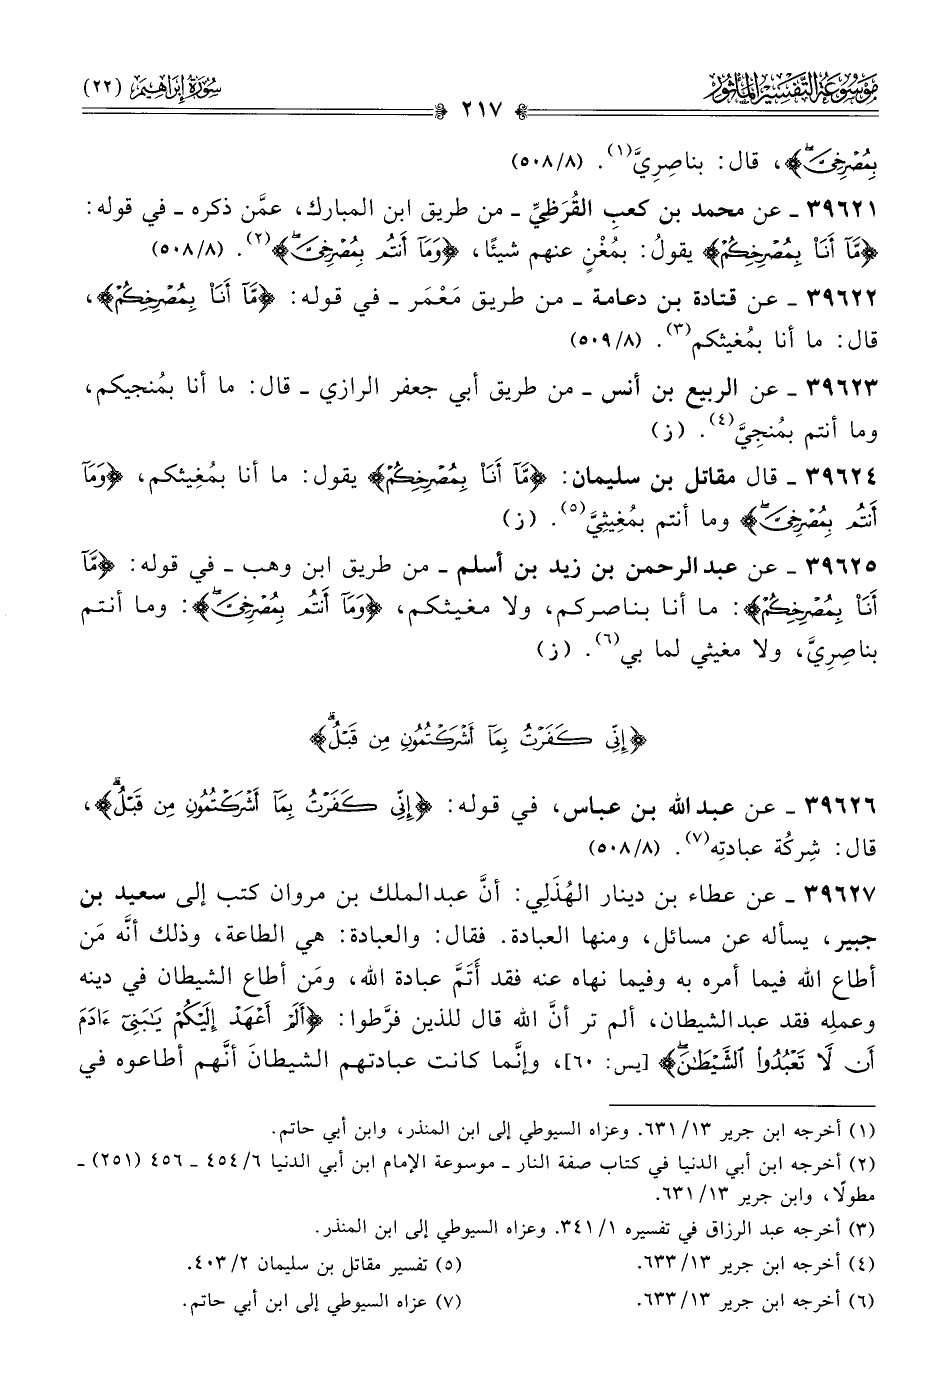 مَوْسُوعَة التَّفْسِير المَأْثُور
سُورَةُ إِبْرَاهِيم (٢٢)
٢١٧
بِمُصْرِخِيَّ﴾، قال: بناصِرِيَّ(١). (٥٠٨/٨)
٣٩٦٢١ ـ عن محمد بن كعب القُرَظِيِّ ـ من طريق ابن المبارك، عمَّن ذكره ـ في قوله:
﴿مَّآ أَنَا۠ بِمُصْرِخِكُمْ﴾ يقولُ: بمُغْنٍ عنهم شيئًا، ﴿وَمَآ أَنتُم بِمُصْرِخِيَّ﴾(٢). (٥٠٨/٨)
٣٩٦٢٢ ـ عن قتادة بن دعامة ـ من طريق مَعْمَر ـ في قوله: ﴿مَّآ أَنَا۠ بِمُصْرِخِكُمْ﴾،
قال: ما أنا بمُغيثكم(٣). (٥٠٩/٨)
٣٩٦٢٣ ـ عن الربيع بن أنس ـ من طريق أبي جعفر الرازي ـ قال: ما أنا بمُنجيكم،
وما أنتم بمُنجِيَّ(٤). (ز)
٣٩٦٢٤ ـ قال مقاتل بن سليمان: ﴿مَّآ أَنَا۠ بِمُصْرِخِكُمْ﴾ يقول: ما أنا بمُغِيثكم، ﴿وَمَآ
أَنتُم بِمُصْرِخِيَّ﴾ وما أنتم بمُغِيثِيَّ(٥). (ز)
٣٩٦٢٥ ـ عن عبدالرحمن بن زيد بن أسلم ـ من طريق ابن وهب ـ في قوله: ﴿مَّآ
أَنَا۠ بِمُصْرِخِكُمْ﴾: ما أنا بناصركم، ولا مغيثكم، ﴿وَمَآ أَنتُم بِمُصْرِخِيَّ﴾: وما أنتم
بناصِرِيَّ، ولا مغيثي لما بي(٦). (ز)
﴿إِنِّى كَفَرْتُ بِمَآ أَشْرَكْتُمُونِ مِن قَبْلُۗ﴾
٣٩٦٢٦ ـ عن عبدالله بن عباس، في قوله: ﴿إِنِّى كَفَرْتُ بِمَآ أَشْرَكْتُمُونِ مِن قَبْلُۗ﴾،
قال: شِركُة عبادتِه(٧). (٥٠٨/٨)
٣٩٦٢٧ ـ عن عطاء بن دينار الهُذَلِي: أنَّ عبدالملك بن مروان كتب إلى سعيد بن
جبير، يسأله عن مسائل، ومنها العبادة. فقال: والعبادة: هي الطاعة، وذلك أنَّه مَن
أطاع الله فيما أمره به وفيما نهاه عنه فقد أَتَمَّ عبادة الله، ومَن أطاع الشيطان في دينه
وعمله فقد عبدالشيطان، ألم تر أنَّ الله قال للذين فرَّطوا: ﴿أَلَمْ أَعْهَدْ إِلَيْكُمْ يَٰبَنِىٓ ءَادَمَ
أَن لَّا تَعْبُدُوا۟ ٱلشَّيْطَٰنَۖ﴾ [يس: ٦٠]، وإنَّما كانت عبادتهم الشيطانَ أنَّهم أطاعوه في
(١) أخرجه ابن جرير ١٣/ ٦٣١. وعزاه السيوطي إلى ابن المنذر، وابن أبي حاتم.
(٢) أخرجه ابن أبي الدنيا في كتاب صفة النار ـ موسوعة الإمام ابن أبي الدنيا ٦/ ٤٥٤ ـ ٤٥٦ (٢٥١) ـ
مطولًا، وابن جرير ١٣/ ٦٣١.
(٣) أخرجه عبد الرزاق في تفسيره ١/ ٣٤١. وعزاه السيوطي إلى ابن المنذر.
(٤) أخرجه ابن جرير ١٣/ ٦٣٣.
(٥) تفسير مقاتل بن سليمان ٢/ ٤٠٣.
(٦) أخرجه ابن جرير ١٣/ ٦٣٣.
(٧) عزاه السيوطي إلى ابن أبي حاتم.